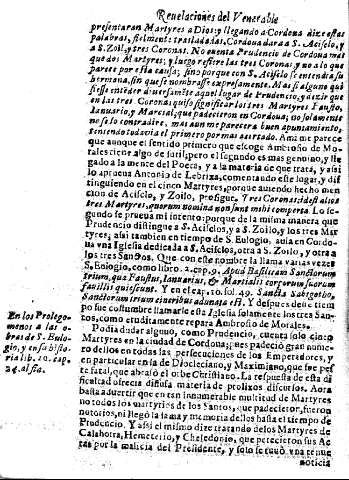 Reuelaciones del Venerable
presentaran Martyres a Dios: y llegando a Cordoua dize estas
palabras, fielmente trasladadas, Cordoua dara a S. Acisclo, y
a S. Zoil, y tres Coronas. No cuenta Prudencio de Cordoua mas
que dos Martyres; y luego refiere las tres Coronas, y no a lo que
parece por esta causa; sino porque con S. Acisclo se entendia su
hermana, sin que se nombrasse expressamente. Mas si alguno qui
siesse entender diuersamente aquel lugar de Prudencio, y dezir que
en las tres Coronas quiso significar los tres Martyres Fausto,
Ianuario, y Marcial, que padecieron en Cordoua; no solamente
no se lo contradire, mas aun me parecera buen apuntamiento,
teniendo todauia el primero por mas acertado. A mi me parece
que aunque el sentido primero que escoge Ambrosio de Mo-
rales tiene algo de sutil; pero el segundo es mas genuino, y lle
gado a la mente del Poeta, y a la materia de que trata, y assi
lo aprueua Antonio de Lebrixa, comentando este lugar, y dis
tinguiendo en el cinco Martyres, porque auiendo hecho men
cion de Acisclo, y Zoilo, prosigue. Tres Coronas: id est alios
tres Martyres, quorum nomina non sunt mihi comperta. Lo se-
gundo se prueua mi intento: porque de la misma manera que
Prudencio distingue a S. Acisclo, y a S. Zoilo, y los tres Mar
tyres; assi tambien en tiempo de S. Eulogio, auia en Cordo-
ua vna Iglesia dedicada a S. Acisclos, otra a S. Zoilo, y otra a
los tres Santos. Que con este nombre la llama varias vezes
S. Eulogio, como libro. 2. cap. 9. Apud Basilicam Sanctorum
trium, qua Faustus, Ianuarius, & Martialis corporum suorum
fauillis quiescunt. Y en el cap. 10. al 29. Sancta
Sanctorum trium cineribus adunata est. Y despues deste tiem
po fue costumbre llamarle esta Iglesia solamente los tres San-
tos, como eruditamente repara Ambrosio de Morales.
En los Prolego-
menos a las o-
bras de S. Eulo-
gio, y en su histo-
ria lib. 10. cap.
24. al fin.
Podia dudar alguno, como Prudencio, cuenta solo cinco
Martyres en la ciudad de Cordoua; pues padecio gran nume-
ro dellos en todas las persecuciones de los Emperadores, y
en particular en la de Diocleciano, y Maximiano, que fue pes
te fatal, que abrasò el orbe Christiano. La respuesta de esta di
ficultad ofrecia difusa materia de prolixos discursos. Aora
basta aduertir que en tan innumerable multitud de Martyres
no todos los martyrios de los Santos, que padecieron, fueron
notorios, ni llegò la fama y memoria dellos hasta el tiempo de
Prudencio. Y assi el mismo dize tratando delos Martyres de
Calahorra, Hemeterio, y Cheledonio, que perecieron sus Ac
tas por la malicia del Presidente, y solo se tuuo vna tenue
noticia